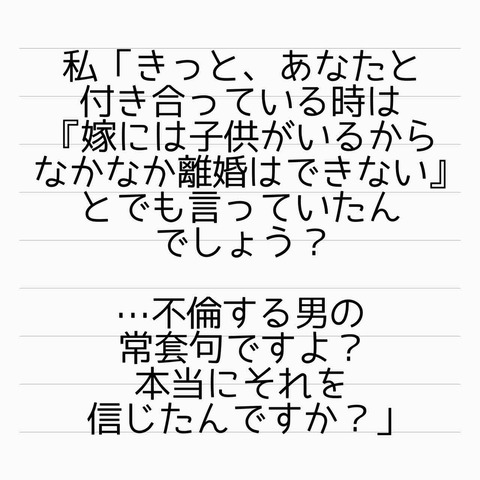 私「きっと、あなたと
付き合っている時は
『嫁には子供がいるから
なかなか離婚はできない』
とでも言っていたん
でしょう？
…不倫する男の
常套句ですよ？
本当にそれを
信じたんですか？」